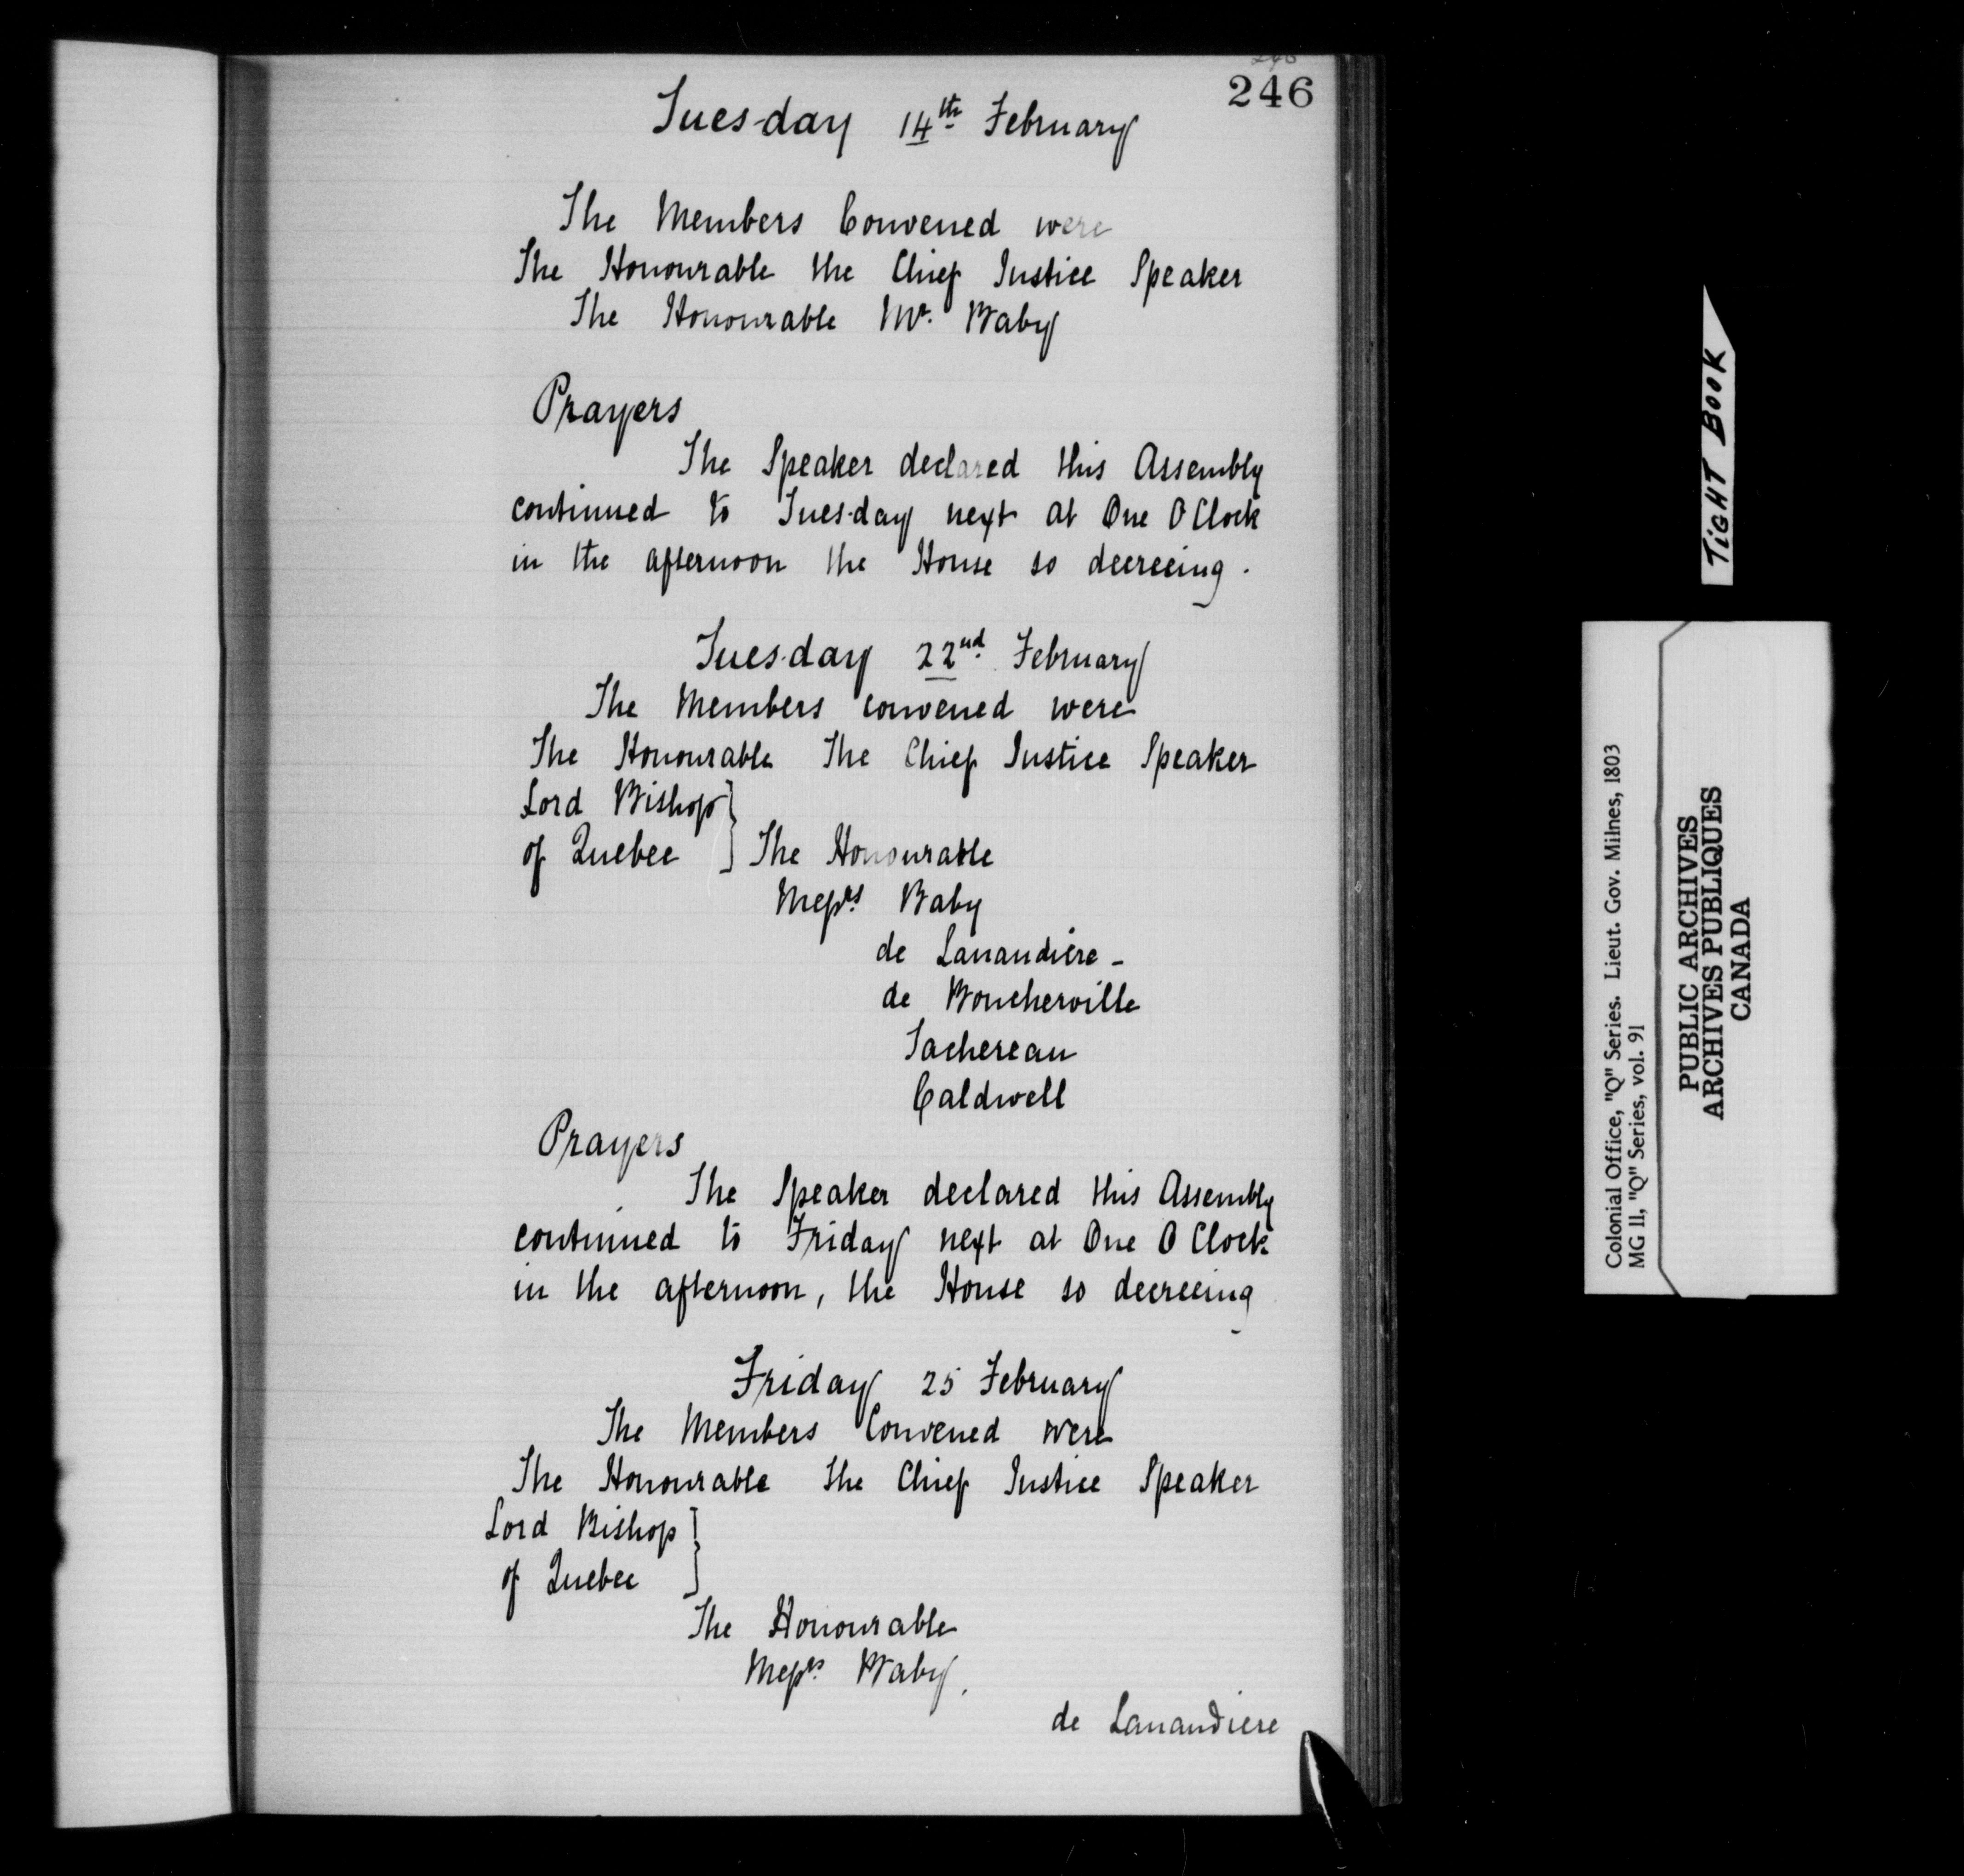 246
Tuesday 14th February
The Members Convened were
The Honourable the Chief Justice Speaker
The Honourable Mr. Baby
Prayers
The Speaker declared this Assembly
continued to Tuesday next at One O Clock
in the afternoon the House so decreeing.
Tuesday 22nd February
The Members convened were
The Honourable The Chief Justice Speaker
Lord Bishop
of Quebec } The Honourable
Messrs Baby
de Lanaudière -
de Boucherville
Tachereau
Caldwell
Prayers
The Speaker declared this Assembly
continued to Friday next at One O Clock
in the afternoon, the House so decreeing
Friday 25 February
The Members Convened were
The Honourable the Chief Justice Speaker
Lord Bishop
of Quebec }
The Honourable
Messrs Baby,
de Lanaudiere
TIGHT BOOK
Colonial Office, "Q" Series. Lieut. Gov. Milnes, 1803
MG 11, "Q" Series, vol. 91
PUBLIC ARCHIVES
ARCHIVES PUBLIQUES
CANADA